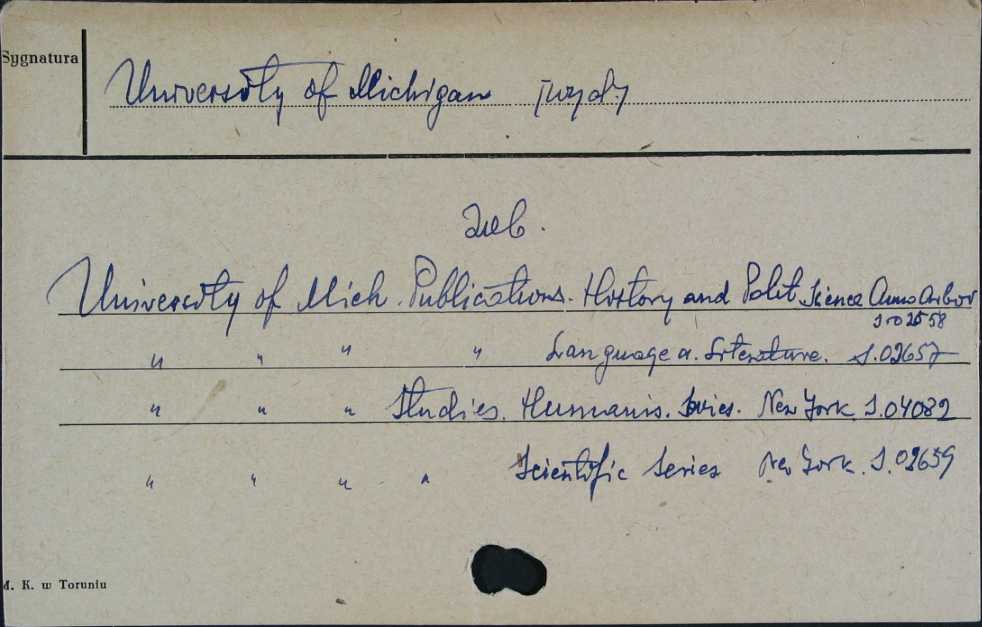 Sygnatura
University of Michigan
zob.
University of Mich. Publications. History and Polit. Science Ann Arbor
S.02658
" " " " Language a. Literature. S.02657
" " " Studies. Humanis. Series. New York S.04082
" " " " Scientific Series New York. S.02659
M. K. w Toruniu